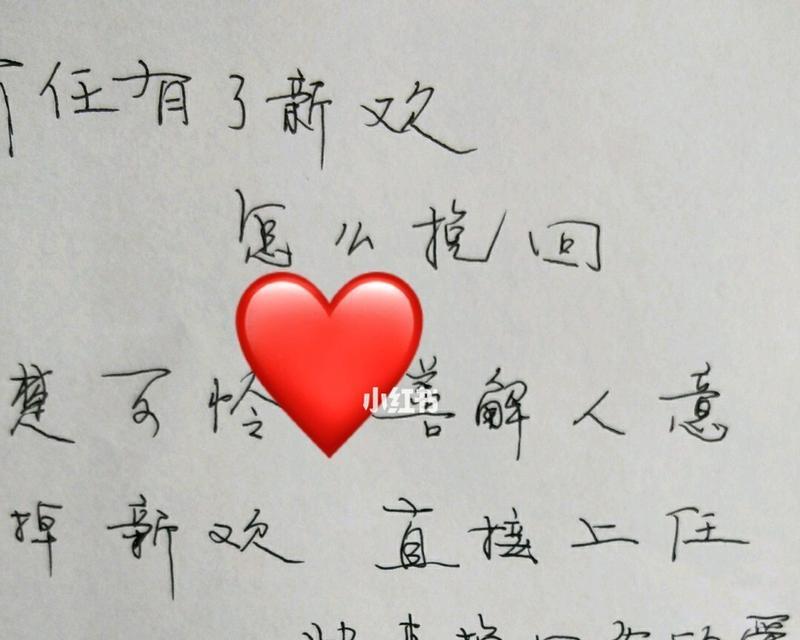 前任有了新欢
怎么挽回
楚可怜 善解人意
小红书
掉新欢 直接上任